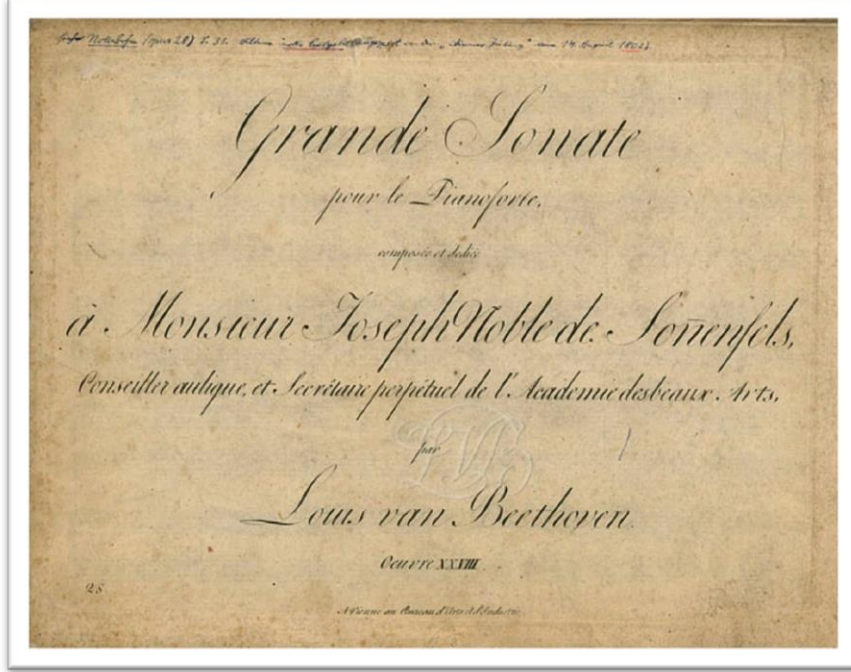 Nottebohm (opus 28) S. 31. in die 14. August 1802)
Grande Sonate
pour le Pianoforte,
composée et dediée
à Monsieur Joseph Noble de Son̄enfels,
Conseiller aulique, et Secrétaire perpétuel de l'Academie des beaux Arts,
par
Louis van Beethoven.
Oeuvre XXVIII
28
A Vienne au Bureau d'Arts et d'Industrie.